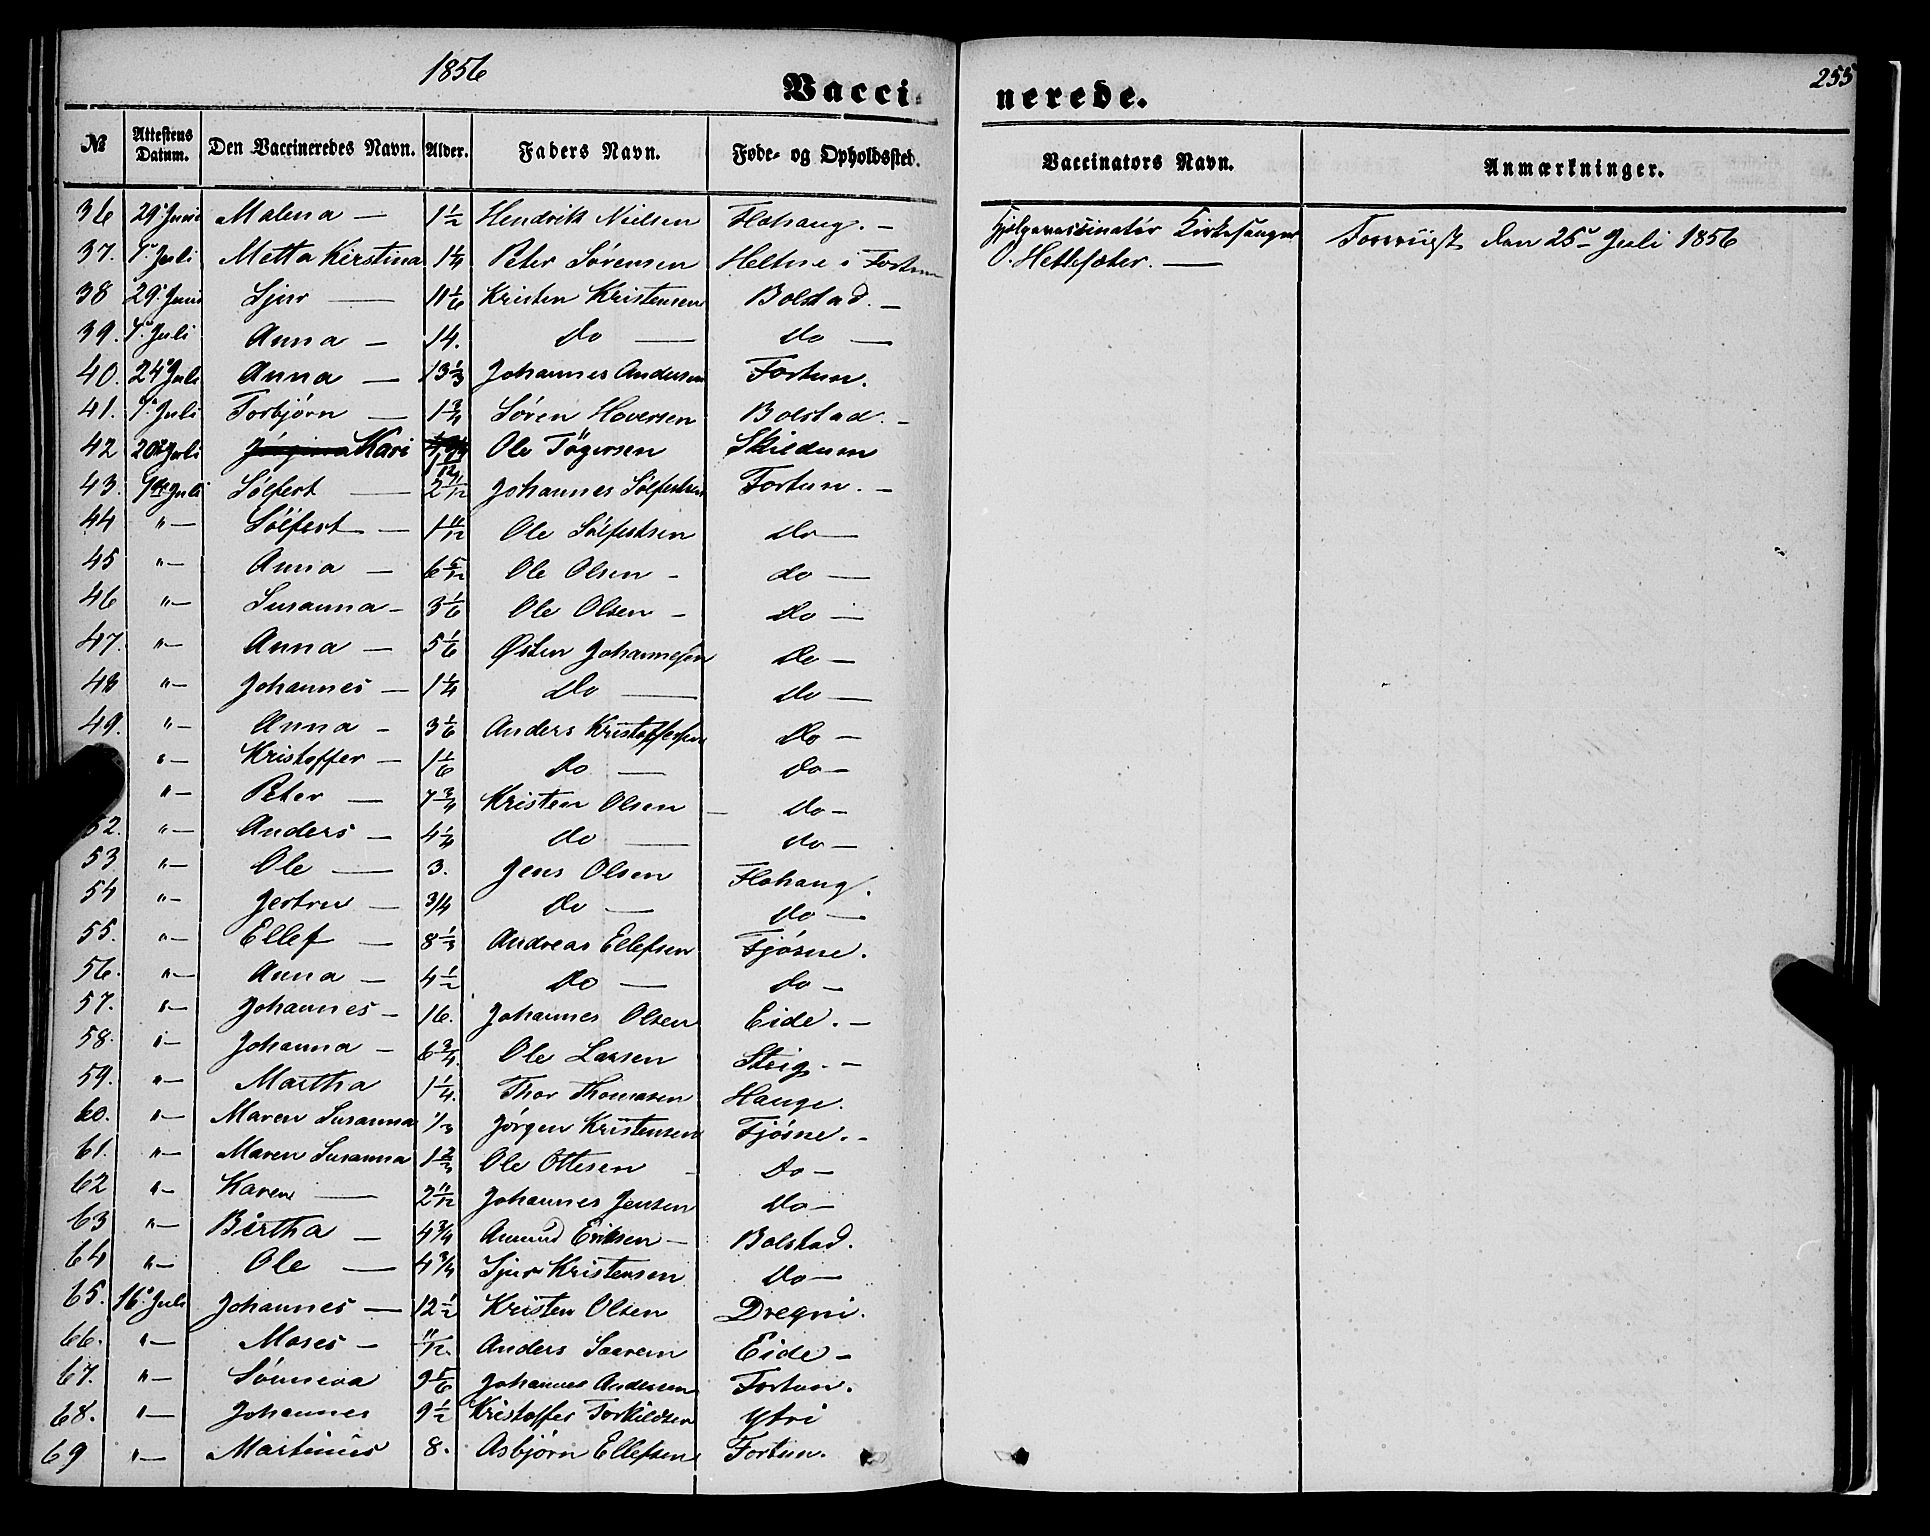 1856
255
Vaccinerede.
№ Attestens Datum. Den Vaccineredes Navn. Alder. Faders Navn. Føde- og Opholdssted. Vaccinators Navn. Anmærkninger.
36 29' Juni Malena — 1½ Hendrik Nielsen Flohaug. — Hjelpevaccinatør Kirkesanger Forevist den 25' Juli 1856
37. 1' Juli Metta Kirstina 1¼ Peter Sørensen Heltne i Fortun O. Hetlefæter. —
38 29' Juni Sjur — 11 1/6 Kristen Kristensen Bolstad. —
39. 1' Juli Anna — 14. do — do —
40. 24' Juli Anna — 13⅓ Johannes Andersen Fortun.
41. 1' Juli Torbjørn — 1¾ Søren Haversen Bolstad. —
42 20' Juli Kari 1/12 Ole Tøgersen Skildum
43. 9' Juli Sølfest — 2 11/12 Johannes Sølfestsen Fortun. —
44 "— Sølfest — 1 11/12 Ole Sølfestsen do —
45 "— Anna — 6 5/12 Ole Olsen — do —
46 "— Susanna — 3 1/6 Ole Olsen — do —
47. "— Anna — 5 1/6 Østen Johannesen do —
48 "— Johannes — 1¼ do — do —
49. "— Anna — 3 1/6 Anders Kristoffersen do —
"— Kristoffer — 1 1/6 do — do —
"— Peter — 7¾ Kristen Olsen — do —
52. "— Anders — 4¼ do — do —
53 "— Ole — 3. Jens Olsen Flohaug.
54 "— Jertru — 3/4 do — do —
55. "— Ellef — 8⅓ Andreas Ellefsen Fjøsne.
56. "— Anna — 4½ do — do —
57. "— Johannes — 16. Johannes Olsen Eide. —
58. "— Johanna — 6¾. Ole Larsen Steig. —
59. "— Martha 1¼. Thor Thomasen Hauge.
60. "— Maren Susanna 1/3 Jørgen Kristensen Fjøsne. —
61. "— Maren Susanna 1⅔ Ole Ottesen — do —
62 "— Karen — 2 11/12 Johannes Jensen do —
63 "— Birtha — 4¾ Amund Eriksen — Bolstad.
64 "— Ole — 4¾ Sjur Kristensen do —
65. 16' Juli Johannes — 12½ Kristen Olsen Dregni.
66. "— Moses — 11/12. Anders Eide —
67. "— Sønneva 9 5/6 Johannes Andersen Fortun.
68. "— Johannes 9½ Kristoffer Torkildsen Ytri
69 "— Martinus 8. Asbjørn Ellefsen Fortun.